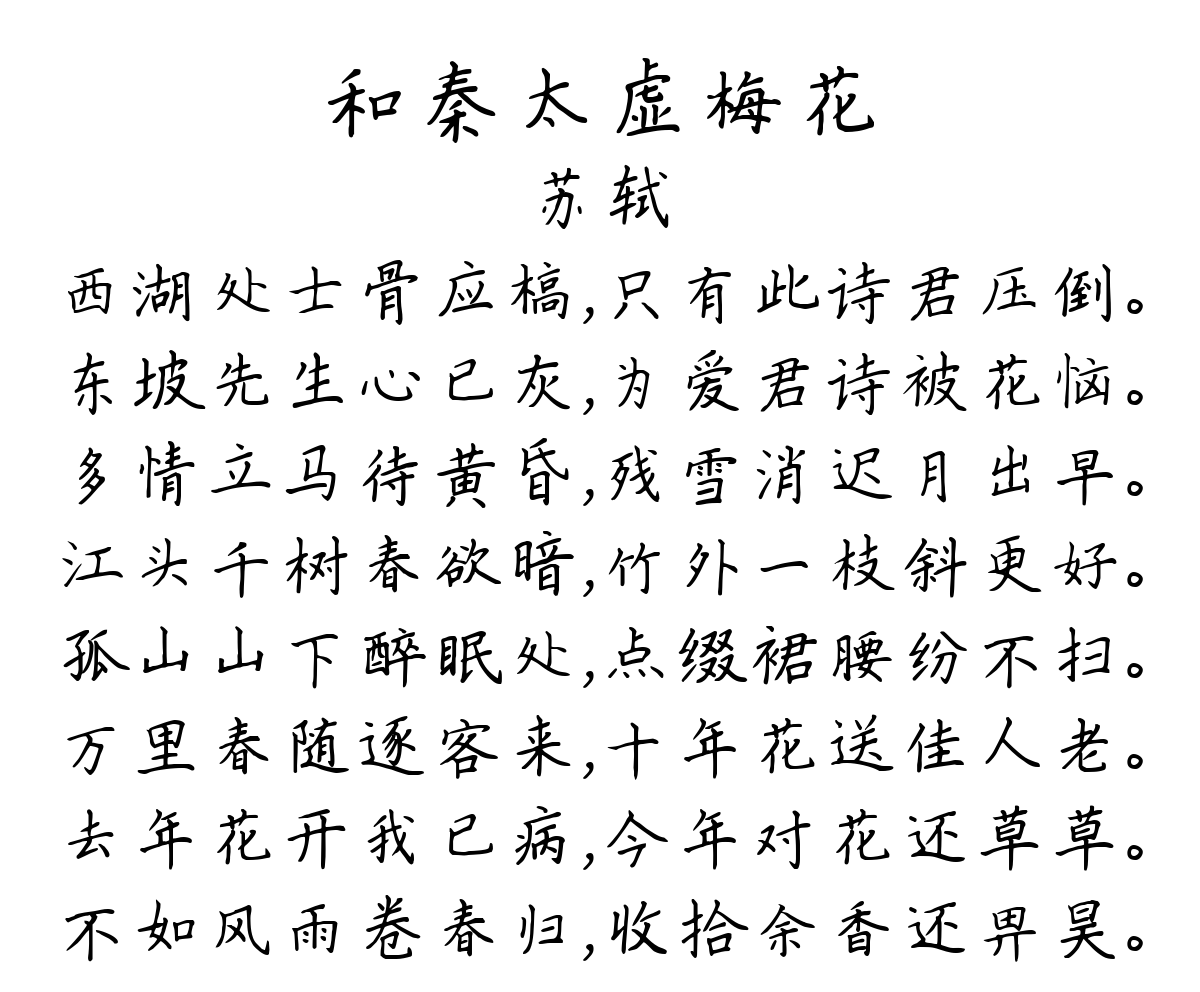 和秦太虚梅花
苏轼
西湖处士骨应槁,只有此诗君压倒。
东坡先生心已灰,为爱君诗被花恼。
多情立马待黄昏,残雪消迟月出早。
江头千树春欲暗,竹外一枝斜更好。
孤山山下醉眠处,点缀裙腰纷不扫。
万里春随逐客来,十年花送佳人老。
去年花开我已病,今年对花还草草。
不如风雨卷春归,收拾余香还畀昊。